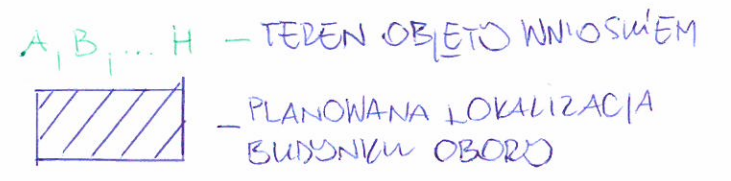 A, B, ... H – TEREN OBJĘTY WNIOSKIEM
– PLANOWANA LOKALIZACJA
BUDYNKU OBORY